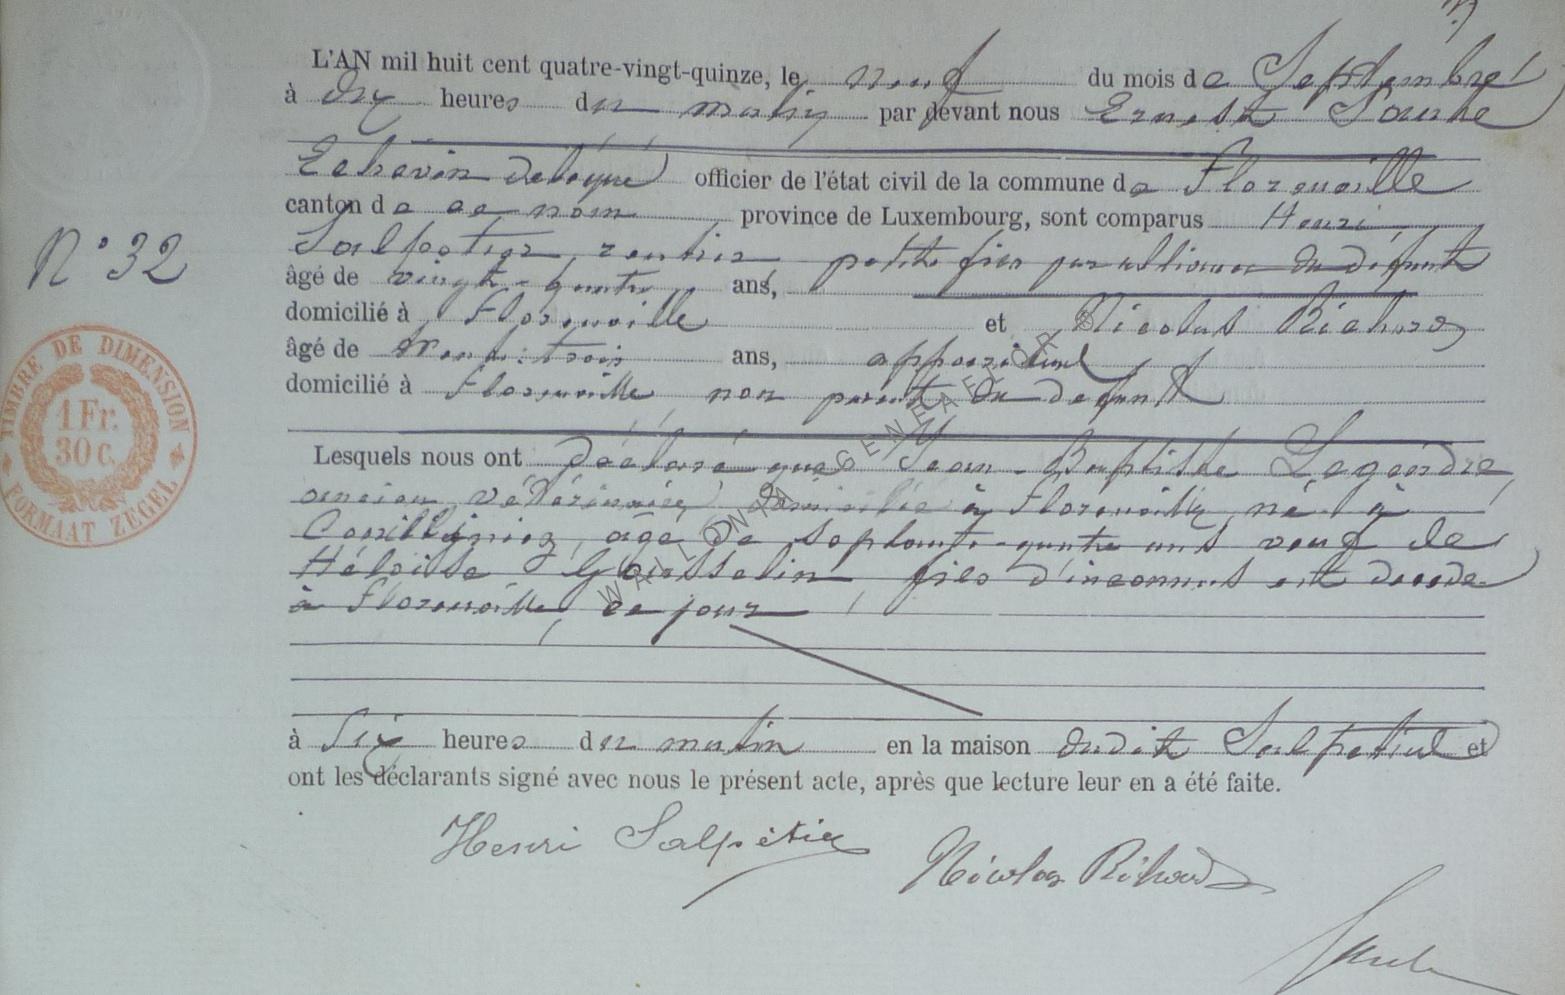 L'AN mil huit cent quatre-vingt-quinze, le neuf du mois de Septembre
à dix heures du matin par devant nous Ernest
Echevin délégué officier de l'état civil de la commune de Florenville
canton de ce nom province de Luxembourg, sont comparus Henri
Salpetier, rentier petit fils par alliance du défunt
âgé de vingt-quatre ans,
domicilié à Florenville et Nicolas Richard
âgé de trente-trois ans, appariteur
domicilié à Florenville non parent du défunt
N° 32
TIMBRE DE DIMENSION
1 Fr.
30 c.
FORMAAT ZEGEL
Lesquels nous ont déclaré que Jean-Baptiste Legendre
ancien vétérinaire, domicilié à Florenville, né à
âgé de septante-quatre ans, veuf de
Héloïse Gousselin fils d'inconnus est décédé
à Florenville, ce jour
à six heures du matin en la maison dudit Salpetier et
ont les déclarants signé avec nous le présent acte, après que lecture leur en a été faite.
Henri Salpétier
Nicolas Richard